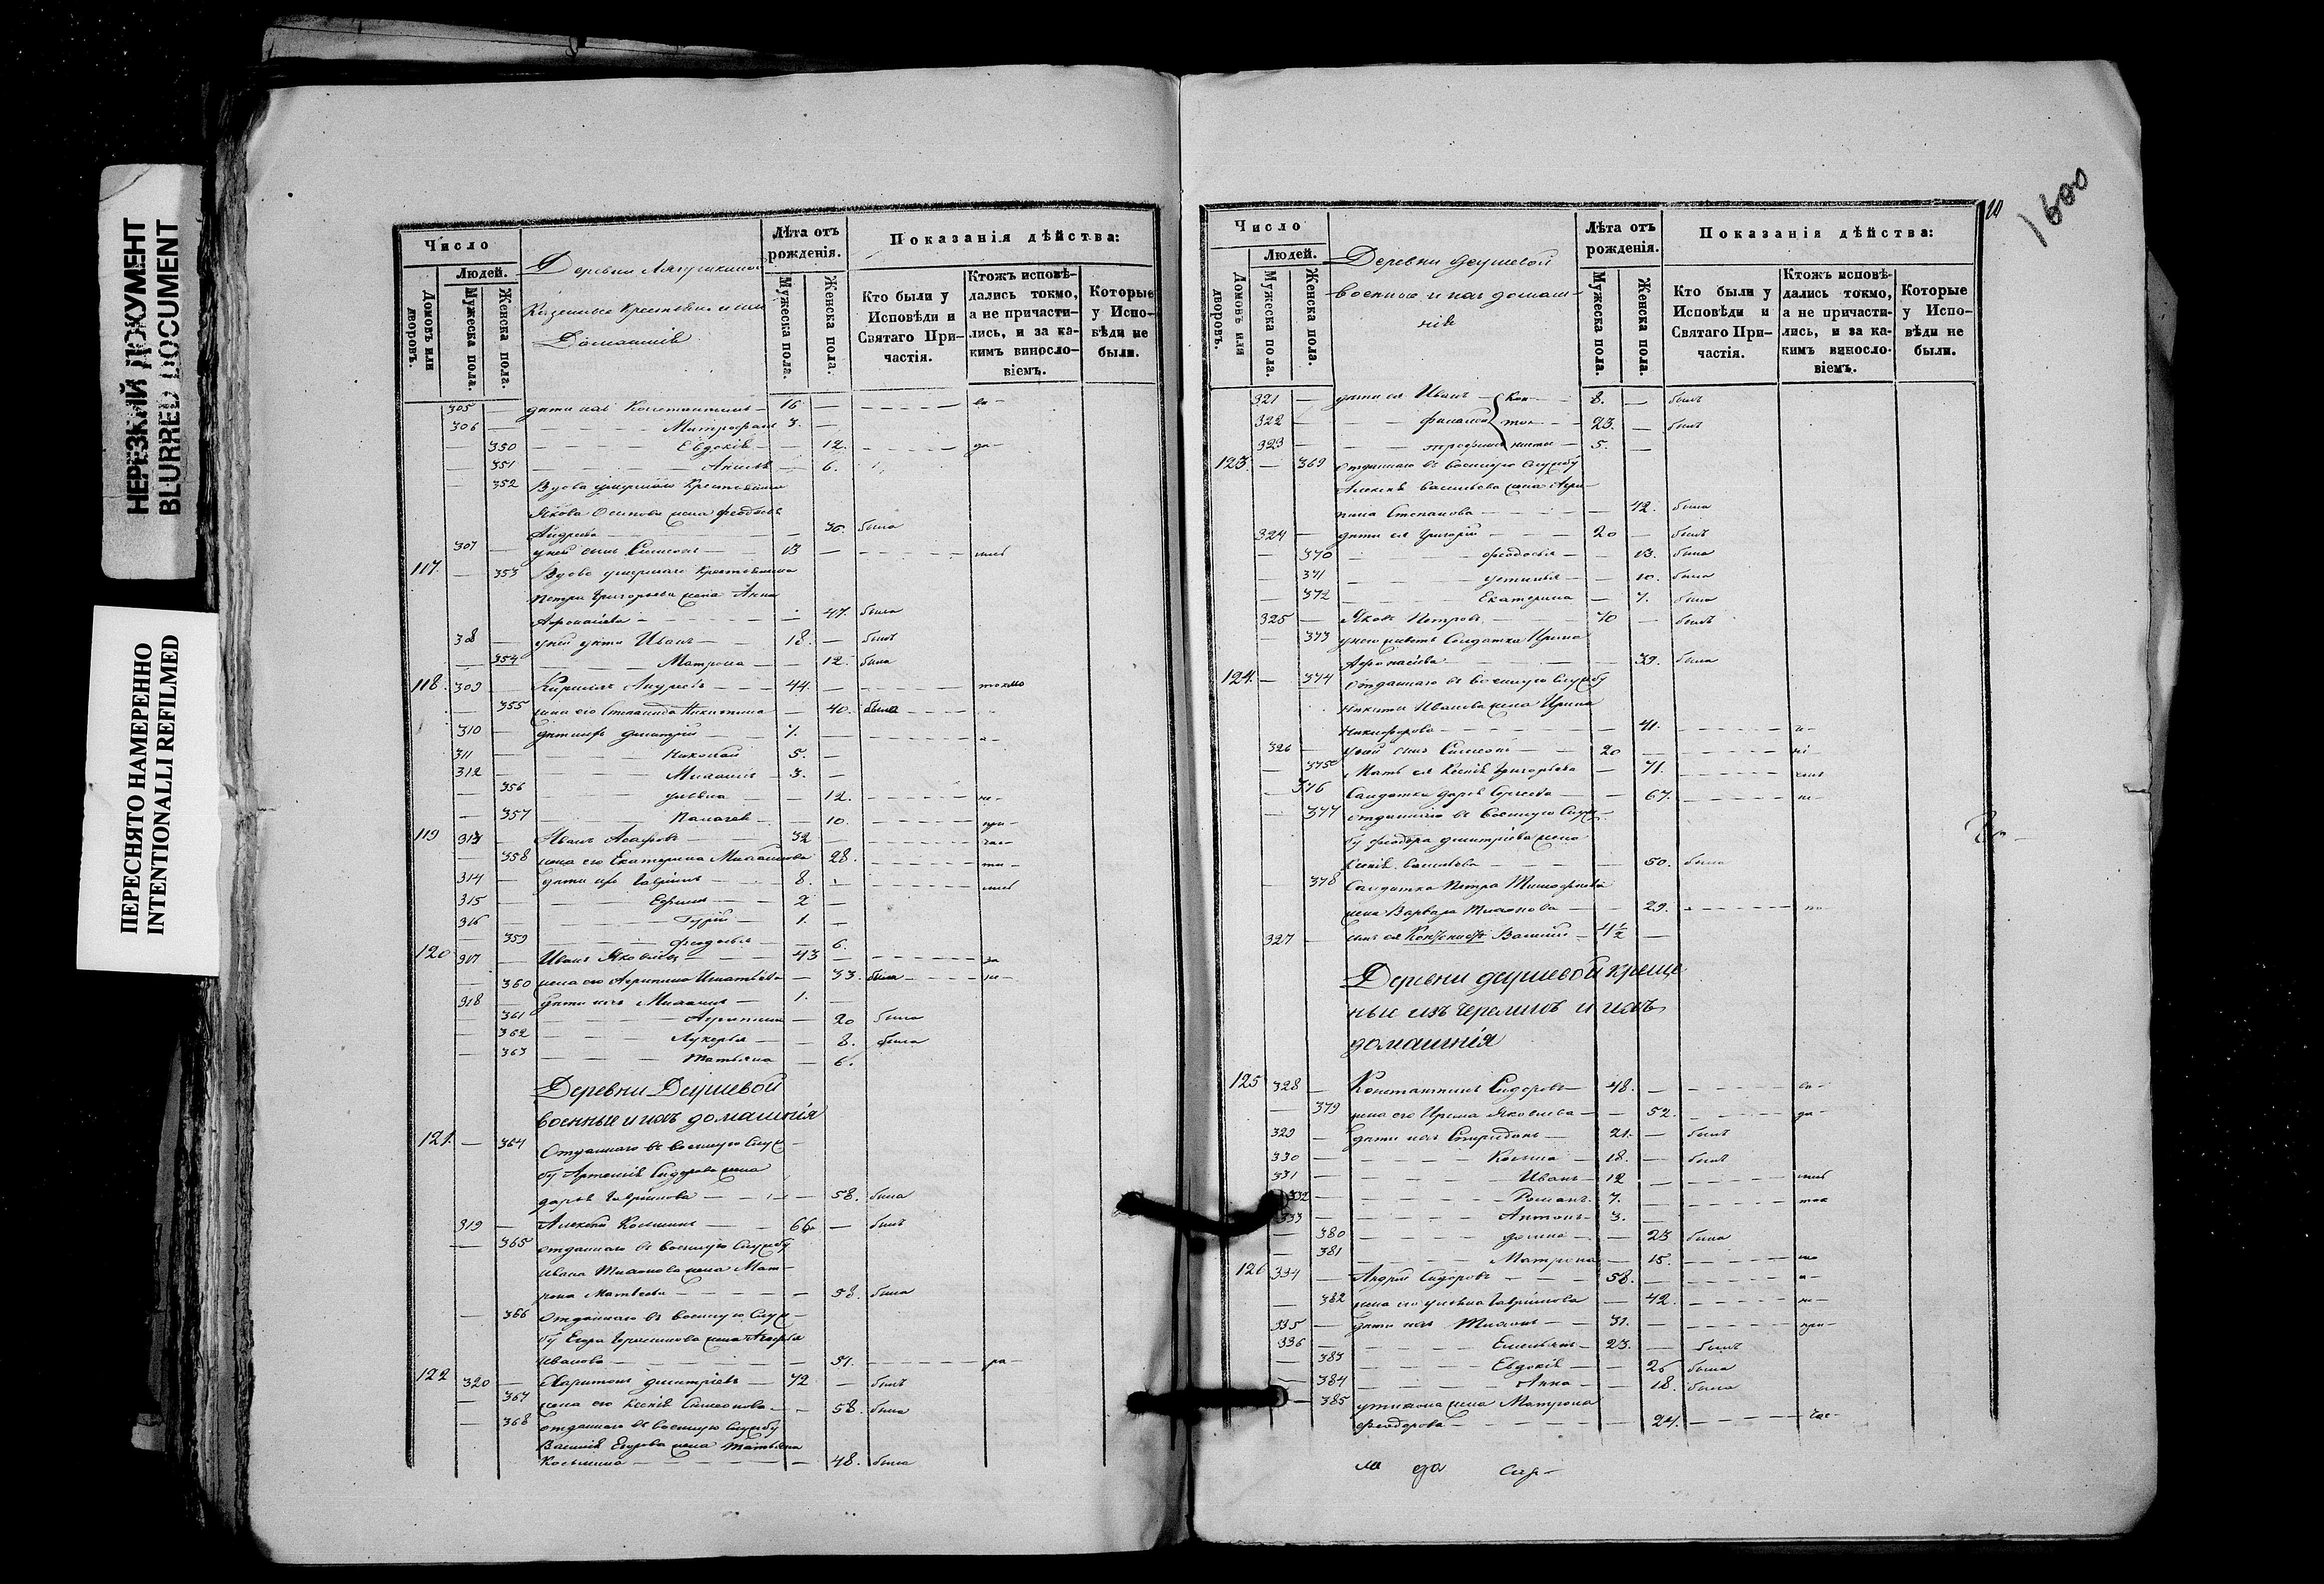 НЕРЕЗКИЙ ДОКУМЕНТ
BLURRED DOCUMENT
ПЕРЕСНЯТО НАМЕРЕННО
INTENTIONALLI REFILMED
Число
Людей.
Домовъ или дворовъ.
Мужеска пола.
Женска пола.
Деревни
Казенные Крестьяне и ихъ
Домашнія
Лѣта отъ рожденія.
Мужеска пола.
Женска пола.
Показанія дѣйства:
Кто были у Исповѣди и Святаго Причастія.
Ктожъ исповѣдались токмо, а не причастились, и за какимъ винословіемъ.
Которые у Исповѣди не были.
305 — дѣти ихъ Константинъ — 16 —
306 — Митрофанъ 3. —
350 — Евдокія — 12.
351 — 6.
352 Вдова умершаго Крестьянина
Якова Осипова жена Феодосья
Андреева — 36. была
307 — у ней сынъ Симеонъ — 13 —
117. — 353 Вдова умершаго Крестьянина
Петра Григорьева жена Анна
Афонасьева — 47. была
308 — у ней дѣти Иванъ — 18. — былъ
354 Матрона — 12. была
118. 309 — Кириллъ Андреевъ — 44. — токмо
355 жена его Степанида Никитина — 40. была
310 — дѣти ихъ Димитрій — 7. —
311 — Николай 5. —
312 — Михаилъ — 3. —
356 — Ульяна — 12. не-
357 — Палагея — 10. при-
119 313 — Иванъ — 32 — час-
358 жена его Екатерина Михайлова 28. ти-
314 — дѣти ихъ Гавріилъ — 8. —
315 — Ефимъ — 2 —
316 — Гурій — 1. —
359 — Феодосья — 6.
120 317 — Иванъ Яковлевъ — 43 — за
360 жена его Агрипина Игнатьева — 33. была
318 — дѣти ихъ Михаилъ — 1. —
361 — Агрипина — 20 была
362 — Лукерья — 8. была
363 — Татьяна — 6.
Деревни Деушевой
военные и ихъ домашнія
121. — 364 Отданнаго въ военную служ-
бу Артемія Сидорова жена
Дарья Гаврилова — 58. была
319 — Алексѣй Козминъ — 66 — былъ
365 отданнаго въ военную службу
Ивана Тихонова жена Мат-
рона Матвеева — 58. была
366 Отданнаго въ военную служ-
бу Егора жена Агафья
Иванова — 51.
122 320 — Харитонъ Дмитріевъ — 72 — былъ
367 жена его Ксенія Симеонова — 58. была
368 отданнаго въ военную службу
Василія Егорова жена Татьяна
Косьмина — 48. была
1600
Число
Людей.
Домовъ или дворовъ.
Мужеска пола.
Женска пола.
Деревни Деушевой
военные и ихъ домаш-
нія
Лѣта отъ рожденія.
Мужеска пола.
Женска пола.
Показанія дѣйства:
Кто были у Исповѣди и Святаго Причастія.
Ктожъ исповѣдались токмо, а не причастились, и за какимъ винословіемъ.
Которые у Исповѣди не были.
321 — дѣти ея Иванъ — Кан- 8. — былъ
322 — тон- 23. — былъ
323 — Трофимъ нисты — 5. —
123. — 369 отданнаго въ военную службу
Алексѣя Васильева жена Агри-
пина Степанова — 42. была
324 — дѣти ея Григорій — 20 — былъ
370 — Феодосья — 13. была
371 — Устинья — 10. была
372 — Екатерина — 7. была
325 — Яковъ Петровъ — 70 — былъ
373 у него живетъ Солдатка Ирина
Афонасьева — 39. была
124. — 374 отданнаго въ военную службу
Никиты Иванова жена Ирина
Никифорова — 41.
326 — у ней сынъ Симеонъ — 20 —
375 Мать ея Ксенія Григорьева — 71.
376 Салдатка Дарья Сергѣева — 67. не-
377 отданнаго въ военную служ-
бу Феодора Димитріева жена
Ксенія Васильева — 50. была
378 Салдатка Петра Тимофеева
жена Варвара Тихонова — 29.
327 — сынъ ея Василій — 4½ —
Деревни Деушевой креще
ные изъ черемисъ и ихъ
домашнія
125 328 — Константинъ Сидоровъ — 48. —
379 жена его Ирина Яковлева — 52.
329 — дѣти ихъ Спиридонъ — 21. — былъ
330 — Козма — 18. — былъ
331 — Иванъ — 12 —
332 — Романъ 7. — ток
333 — Антонъ 3. —
380 — 23 была
381 — Матрона — 15. мо
126 334 — Андрей Сидоровъ — 58. — а-
382 жена его Ульяна Гаврилова — 42. не-
335 — дѣти ихъ Тихонъ — 31. — при-
336 — Емельянъ — 23. — былъ
383 — Евдокія — 26 была
384 — Анна — 18. была
385 у Тихона жена Матрона
Феодорова — 24. час-